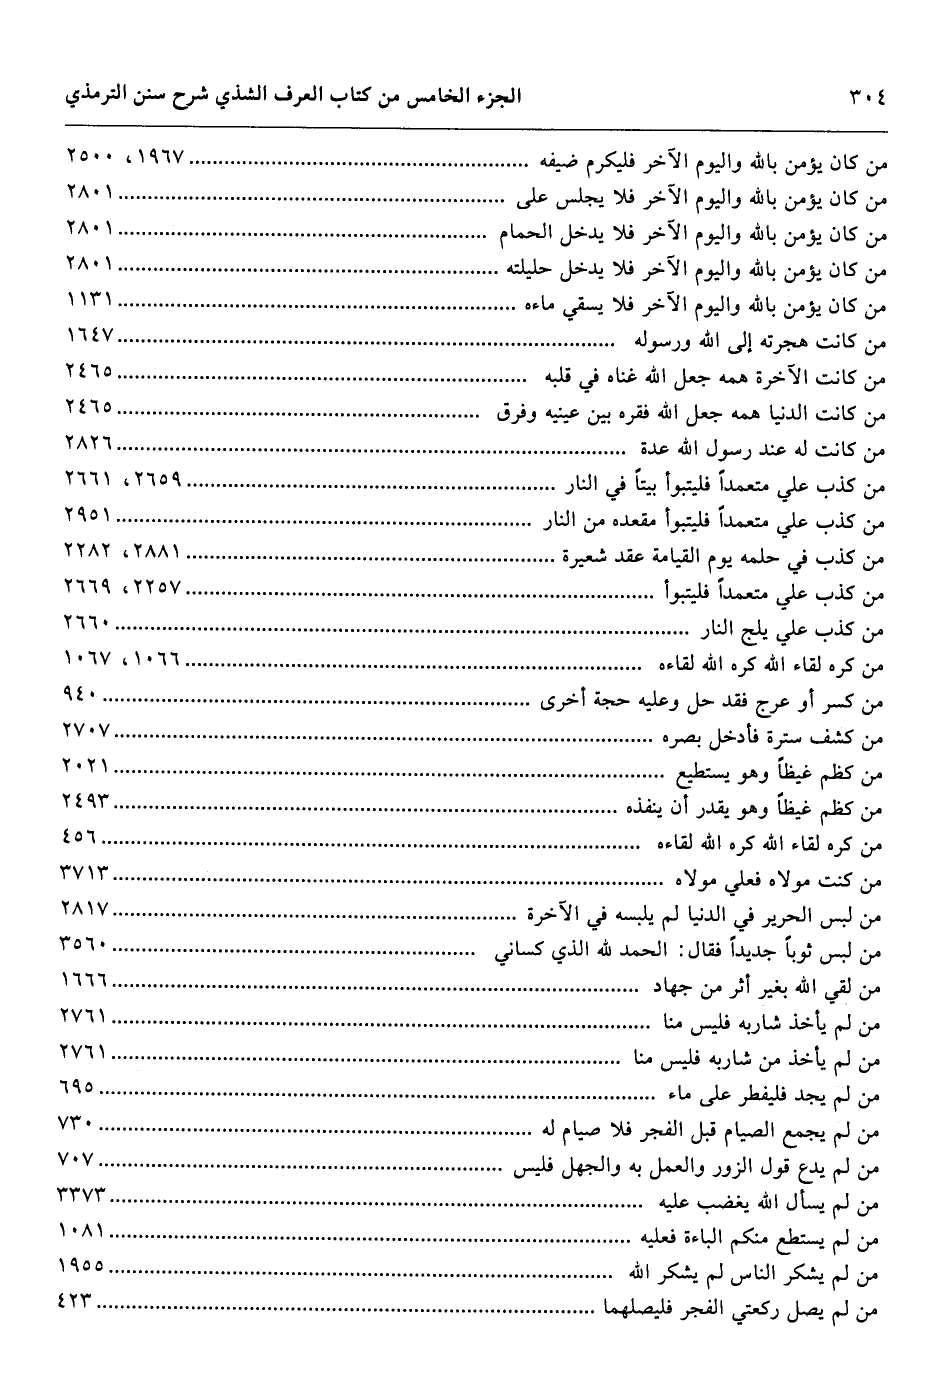 ٣٠٤ الجزء الخامس من كتاب العرف الشذي شرح سنن الترمذي
من كان يؤمن بالله واليوم الآخر فليكرم ضيفه ........ ١٩٦٧، ٢٥٠٠
من كان يؤمن بالله واليوم الآخر فلا يجلس على ........ ٢٨٠١
من كان يؤمن بالله واليوم الآخر فلا يدخل الحمام ........ ٢٨٠١
من كان يؤمن بالله واليوم الآخر فلا يدخل حليلته ........ ٢٨٠١
من كان يؤمن بالله واليوم الآخر فلا يسقي ماءه ........ ١١٣١
من كانت هجرته إلى الله ورسوله ........ ١٦٤٧
من كانت الآخرة همه جعل الله غناه في قلبه ........ ٢٤٦٥
من كانت الدنيا همه جعل الله فقره بين عينيه وفرق ........ ٢٤٦٥
من كانت له عند رسول الله عدة ........ ٢٨٢٦
من كذب علي متعمداً فليتبوأ بيتاً في النار ........ ٢٦٥٩، ٢٦٦١
من كذب علي متعمداً فليتبوأ مقعده من النار ........ ٢٩٥١
من كذب في حلمه يوم القيامة عقد شعيرة ........ ٢٨٨١، ٢٢٨٢
من كذب علي متعمداً فليتبوأ ........ ٢٢٥٧، ٢٦٦٩
من كذب علي يلج النار ........ ٢٦٦٠
من كره لقاء الله كره الله لقاءه ........ ١٠٦٦، ١٠٦٧
من كسر أو عرج فقد حل وعليه حجة أخرى ........ ٩٤٠
من كشف سترة فأدخل بصره ........ ٢٧٠٧
من كظم غيظاً وهو يستطيع ........ ٢٠٢١
من كظم غيظاً وهو يقدر أن ينفذه ........ ٢٤٩٣
من كره لقاء الله كره الله لقاءه ........ ٤٥٦
من كنت مولاه فعلي مولاه ........ ٣٧١٣
من لبس الحرير في الدنيا لم يلبسه في الآخرة ........ ٢٨١٧
من لبس ثوباً جديداً فقال: الحمد لله الذي كساني ........ ٣٥٦٠
من لقي الله بغير أثر من جهاد ........ ١٦٦٦
من لم يأخذ شاربه فليس منا ........ ٢٧٦١
من لم يأخذ من شاربه فليس منا ........ ٢٧٦١
من لم يجد فليفطر على ماء ........ ٦٩٥
من لم يجمع الصيام قبل الفجر فلا صيام له ........ ٧٣٠
من لم يدع قول الزور والعمل به والجهل فليس ........ ٧٠٧
من لم يسأل الله يغضب عليه ........ ٣٣٧٣
من لم يستطع منكم الباءة فعليه ........ ١٠٨١
من لم يشكر الناس لم يشكر الله ........ ١٩٥٥
من لم يصل ركعتي الفجر فليصلهما ........ ٤٢٣